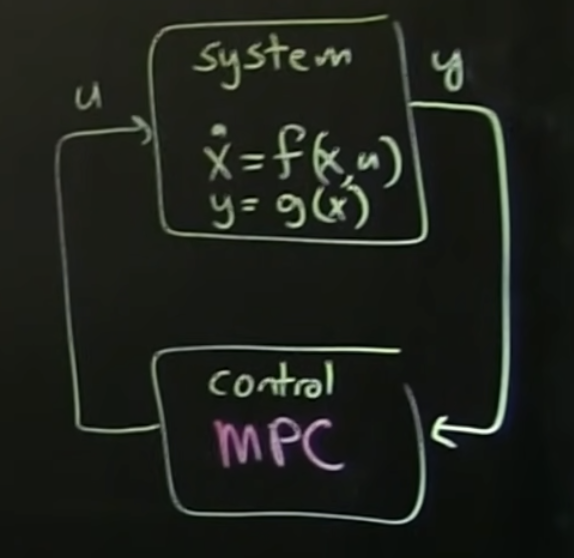 system
y
u
ẋ = f(x,u)
y = g(x)
control
MPC